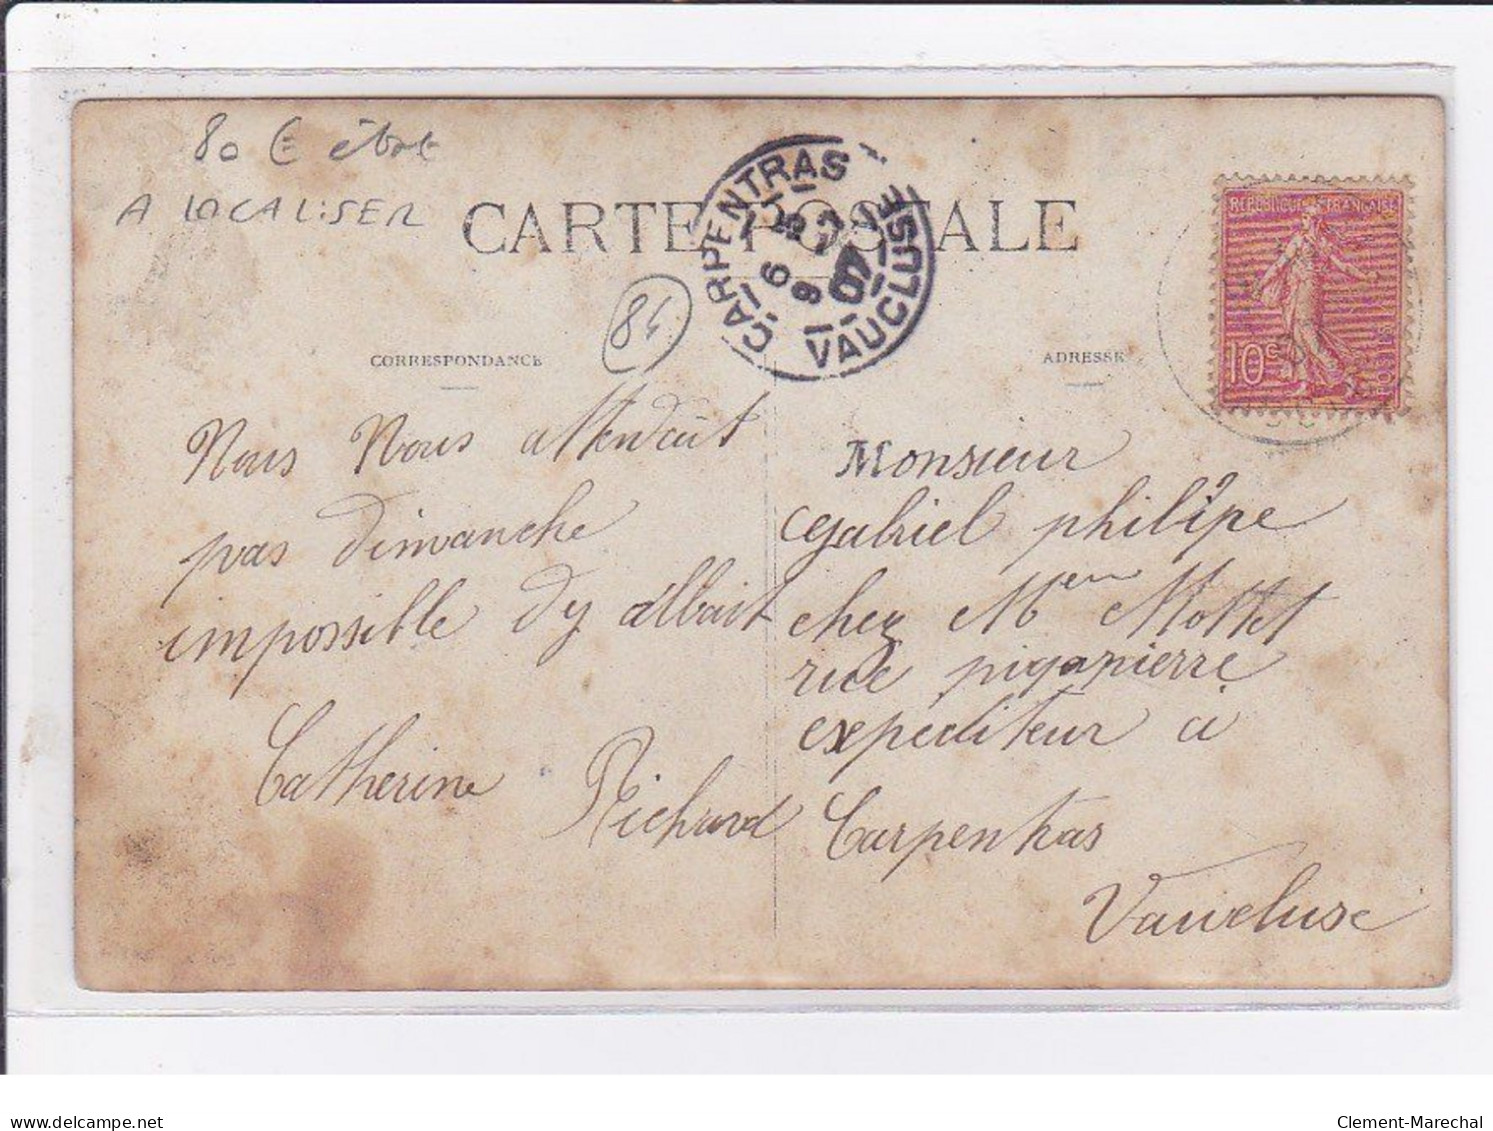 80 € état
A LOCALISER
CARTE POSTALE
CARPENTRAS
VAUCLUSE
6
9
07
84
REPUBLIQUE FRANÇAISE
10c
POSTES
CORRESPONDANCE
ADRESSE
Nous Nous attendait
pas dimanche
impossible dy allait
Catherine Richard
Monsieur
Gabriel philipe
chez Men Mottet
rue pigapierre
expediteur a
Carpentras
Vaucluse
delcampe.net
Clement-Marechal